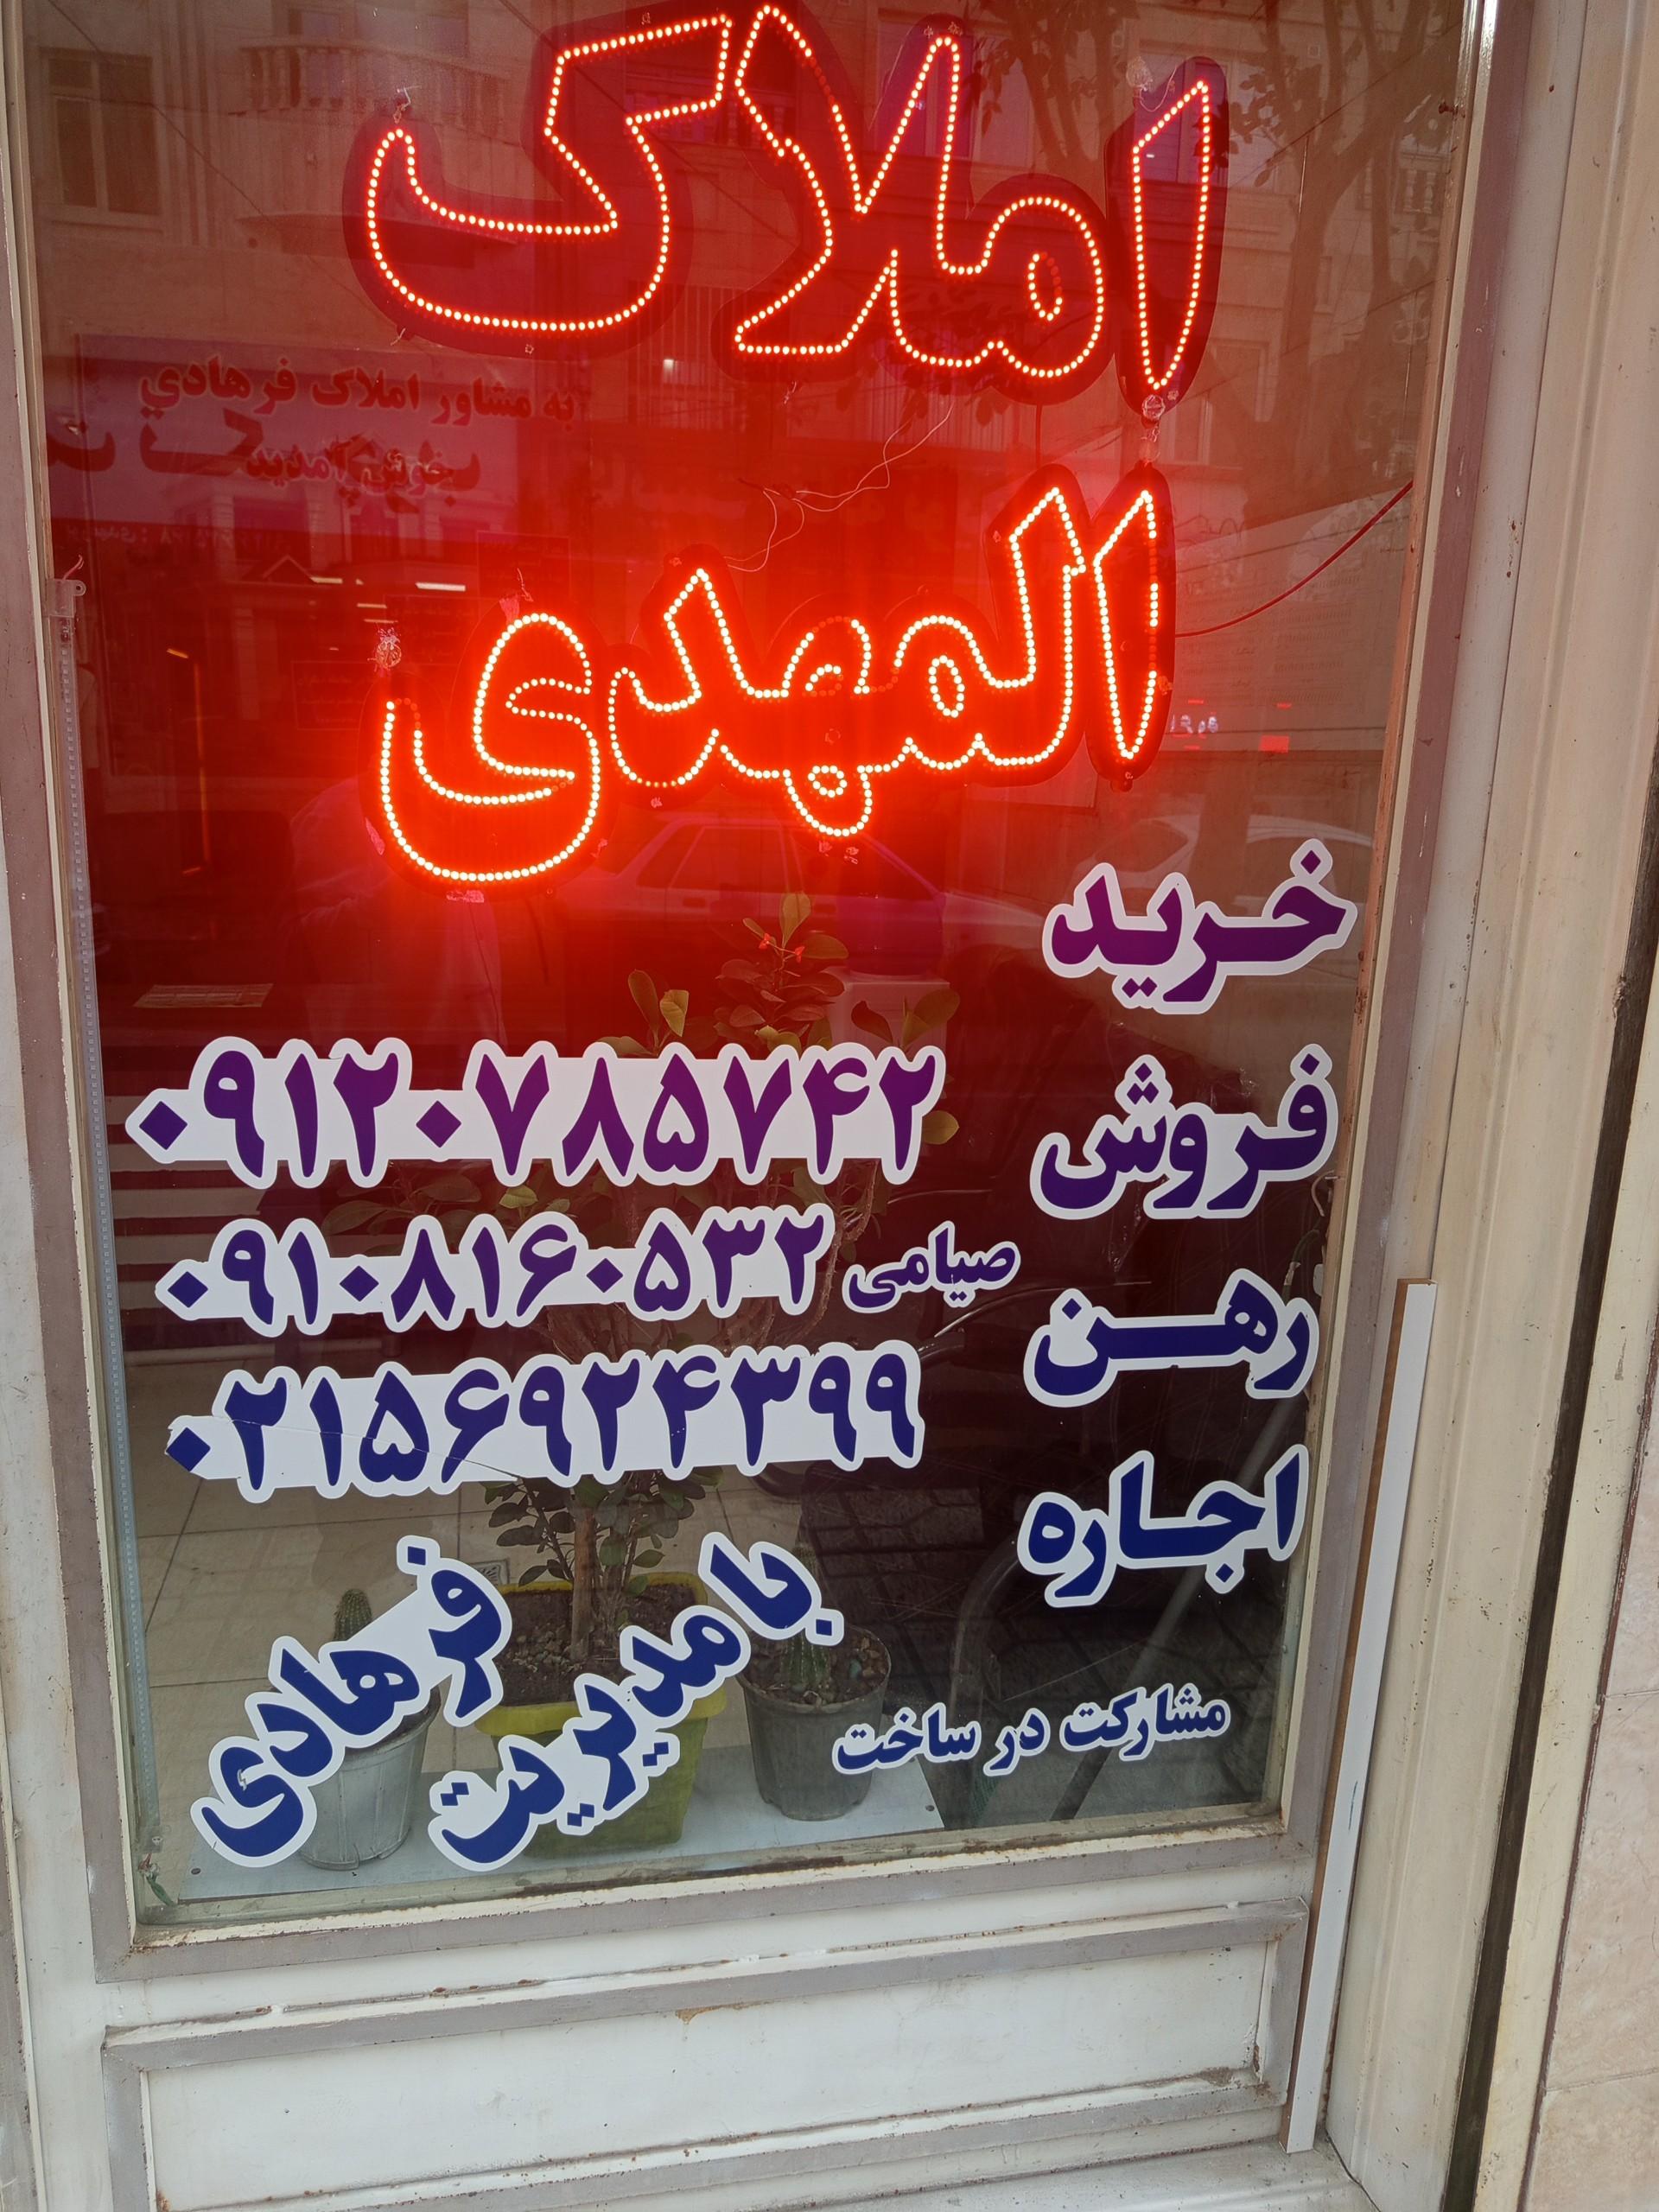 املاک
المهدی
به مشاور املاک فرهادي
خوش آمدید
خرید
فروش
رهن
اجاره
مشارکت در ساخت
۰۹۱۲۰۷۸۵۷۴۲
۰۹۱۰۸۱۶۰۵۳۲ صیامی
۰۲۱۵۶۹۲۴۳۹۹
با مدیریت
فرهادی